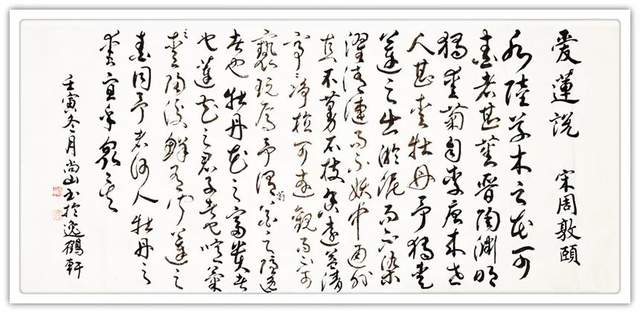 愛蓮説 宋周敦頤
水陸草木之花可
愛者甚蕃晉陶淵明
獨愛菊自李唐來世
人甚愛牡丹予獨愛
蓮之出淤泥而不染
濯清漣而不妖中通外
直不蔓不枝香遠益清
亭亭淨植可遠觀而不可
褻玩焉予謂菊花之隱逸
者也牡丹花之富貴者
也蓮花之君子者也噫菊
之愛陶後鮮有聞蓮之
愛同予者何人牡丹之
愛宜乎衆矣
壬寅冬月尚山書於逸鶴軒